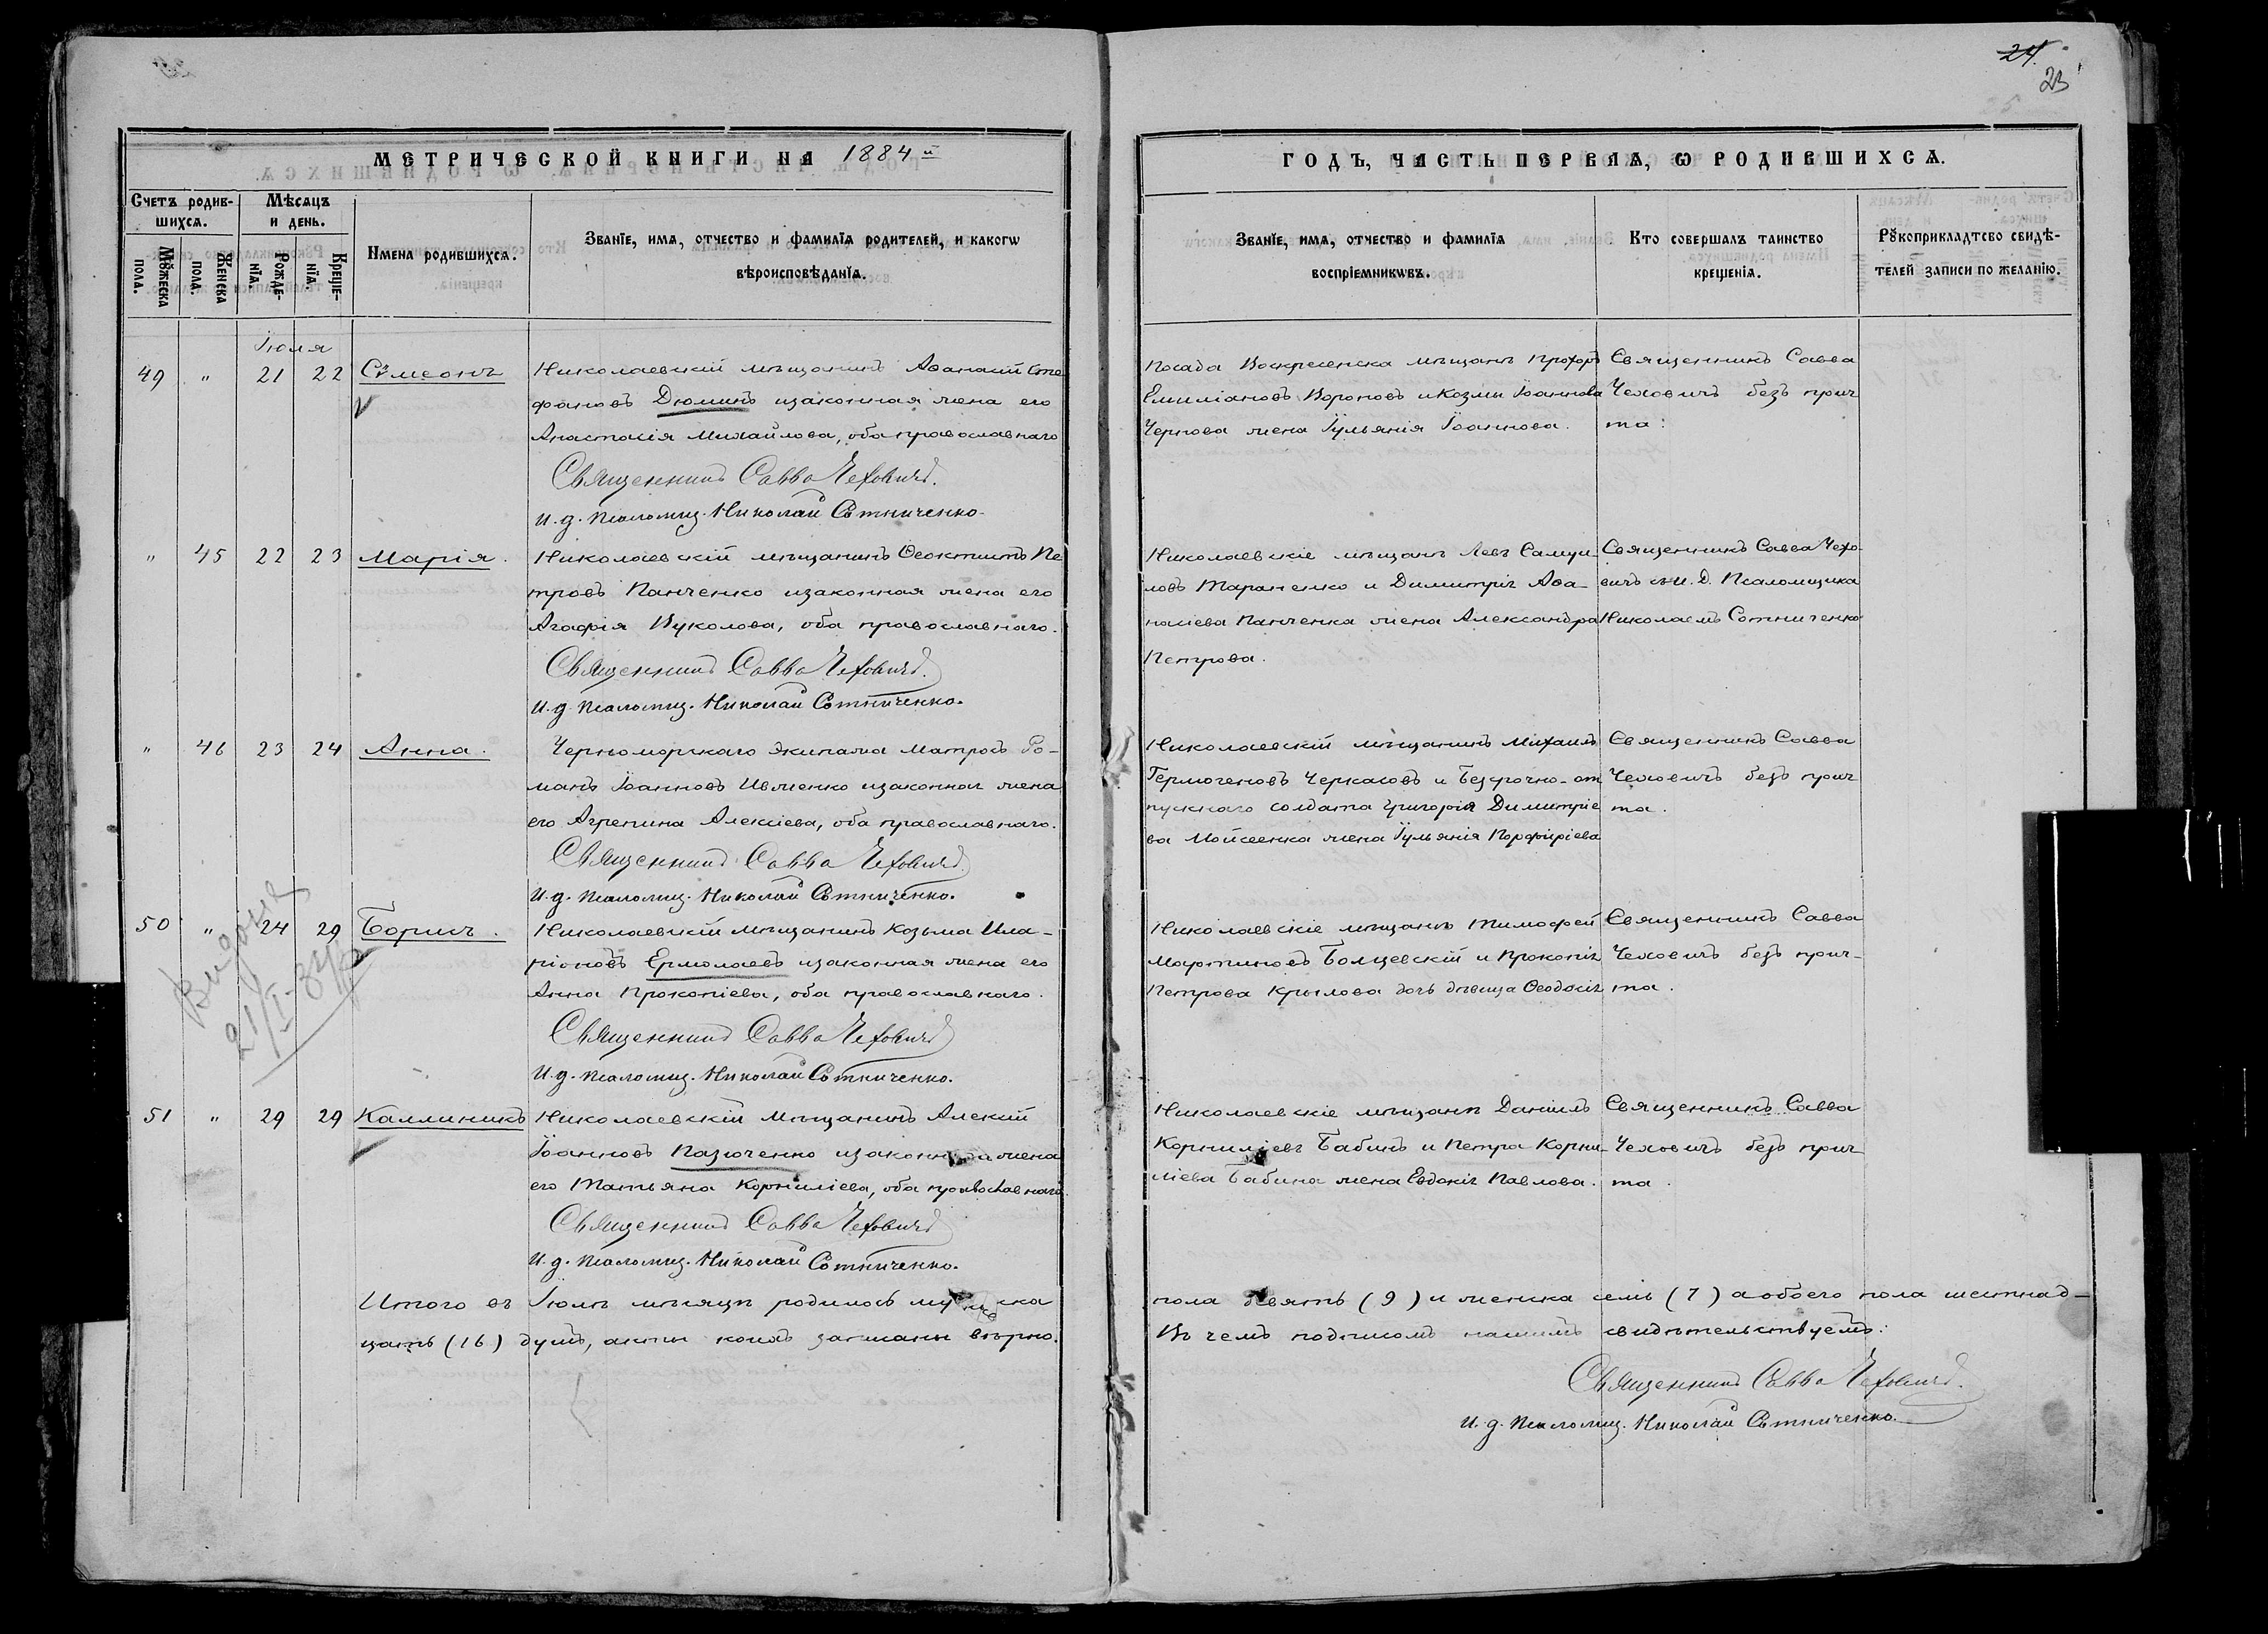 24.
23
МЕТРИЧЕСКОЙ КНИГИ НА 1884й
ГОДЪ, ЧАСТЬ ПЕРВАЯ, Ѡ РОДИВШИХСѦ.
Счетъ родив-
шихсѧ.
Мѣсѧцъ
и день.
Мꙋжеска
пола.
Женска
пола.
Рожде-
нїѧ.
Креще-
нїѧ.
Имена родившихсѧ.
Званїе, имѧ, отчество и фамилїѧ родителей, и какогѡ
вѣроисповѣданїѧ.
Званїе, имѧ, отчество и фамилїѧ
воспрїемникѡвъ.
Кто совершалъ таинство
крещенїѧ.
Рꙋкоприкладтсво свидѣ-
телей записи по желанїю.
Іюля
49 " 21 22 Сѵмеонъ
Николаевскій мѣщанинъ Аѳанасій Сте
фановъ Дюминъ и законная жена его
Анастасія Михайлова, оба православнаго
Священникъ Савва Чеховичъ.
И. д. псаломщ. Николай Сотниченко.
Посада Воскресенска мѣщанъ Прохоръ
Емиліановъ Вороновъ и Козмы Іоаннова
Чернова жена Іульянія Іоаннова.
Священникъ Савва
Чеховичъ безъ прич
та:
" 45 22 23 Марія.
Николаевскій мѣщанинъ Ѳеоктистъ Пе
тровъ Панченко и законная жена его
Агафія Вуколова, оба православнаго.
Священникъ Савва Чеховичъ.
И. д. псаломщ. Николай Сотниченко.
Николаевскіе мѣщанъ Левъ Самуи-
ловъ Тараненко и Димитрія Аѳа-
насіева Панченка жена Александра
Петрова.
Священникъ Савва Чехо-
вичъ съ И. Д. Псаломщика
Николаемъ Сотниченко
" 46 23 24 Анна.
Черноморскаго экипажа матросъ Ро-
манъ Іоанновъ Ивженко и законная жена
его Агрепина Алексіева, оба православнаго.
Священникъ Савва Чеховичъ.
И. д. псаломщ. Николай Сотниченко.
Николаевскій мѣщанинъ Михаилъ
Гермогеновъ Черкасовъ и Безсрочно-от
пускнаго солдата Григорія Димитріе
ва Мойсеенка жена Іульянія Порфиріева
Священникъ Савва
Чеховичъ безъ прич
та.
50 " 24 29 Борисъ.
Николаевскій мѣщанинъ Козьма Ила-
ріоновъ Ермолаевъ и законная жена его
Анна Прокопіева, оба православнаго.
Священникъ Савва Чеховичъ
И. д. псаломщ. Николай Сотниченко.
Николаевскіе мѣщанъ Тимофей
Мартиновъ Болцевскій и Прокопія
Петрова Крылова дочь дѣвица Ѳеодосія
Священникъ Савва
Чеховичъ безъ прич-
та.
51 " 29 29 Каллиникъ
Николаевскій мѣщанинъ Алексій
Іоанновъ Пазюченко и законная жена
его Татьяна Корниліева, оба православнаго.
Священникъ Савва Чеховичъ
И. д. псаломщ. Николай Сотниченко.
Николаевскіе мѣщанъ Даніилъ
Корниліевъ Бабинъ и Петра Корни-
ліева Бабина жена Евдокія Павлова.
Священникъ Савва
Чеховичъ безъ прич
та.
Итого въ Іюлѣ мѣсяцѣ родилось мужеска
пола девять (9) и женска семь (7) а обоего пола шестнад-
цать (16) душъ, акты коихъ записаны вѣрно.
Въ чемъ подписомъ нашимъ свидѣтельствуемъ:
Священникъ Савва Чеховичъ.
И. д. Псаломщ. Николай Сотниченко.